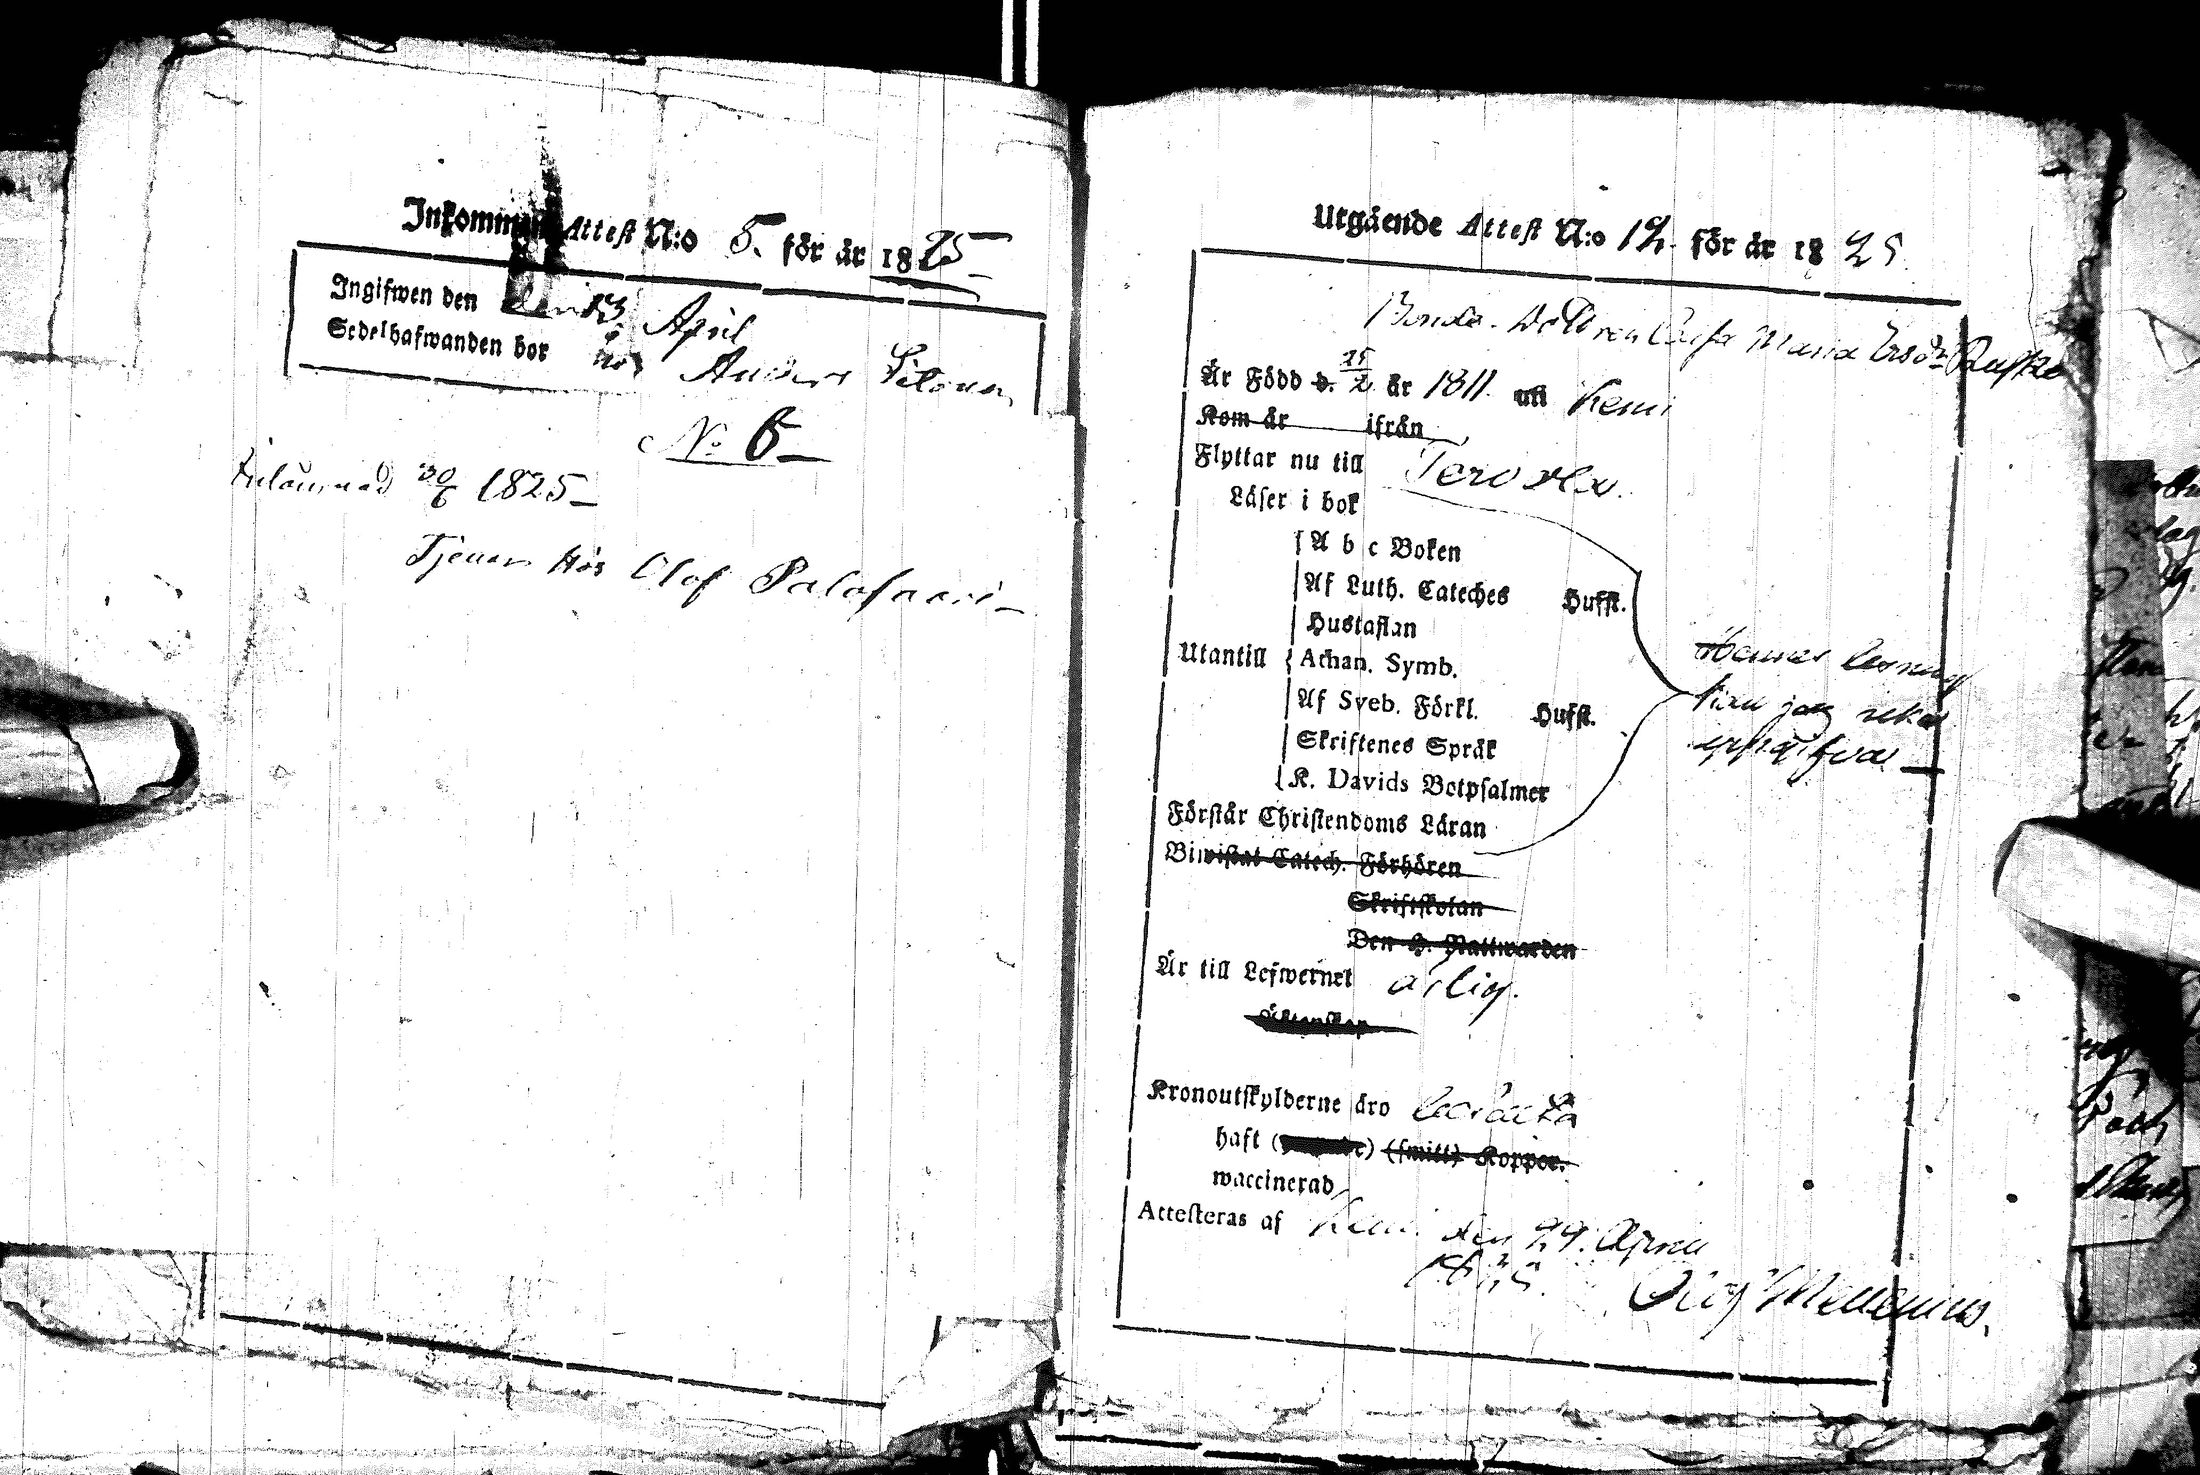 Inkommen Attest N:o 5. för år 1825
Ingifwen den den 13 April
Sedelhafwanden bor hos Anders
No 6
20/6 1825
Tjenar hos Olof Palosaari
Utgående Attest N:o 12. för år 1825
Bonde Dottren Maria
Är Född d. 25/2 år 1811. uti Kemi
Kom år ifrån
Flyttar nu till Tervola.
Läser i bok
A b c Boken
Af Luth. Cateches Hufst.
Hustaflan
Utantill Athan. Symb.
Af Sveb. Förkl. Hufst.
Skriftenes Språk
K. Davids Botpsalmer
Hennes läsning
kan jag icke
uppgifva
Förstår Christendoms Läran
Biwistat Catech. Förhören
Skriftskolan
Den H. Nattwarden
Är till Lefwernet ärlig.
Äktenskap
Kronoutskylderne äro betalta
haft ( ) (smitt) Koppor.
waccinerad
Attesteras af Kemi den 29. April
1825. Olof